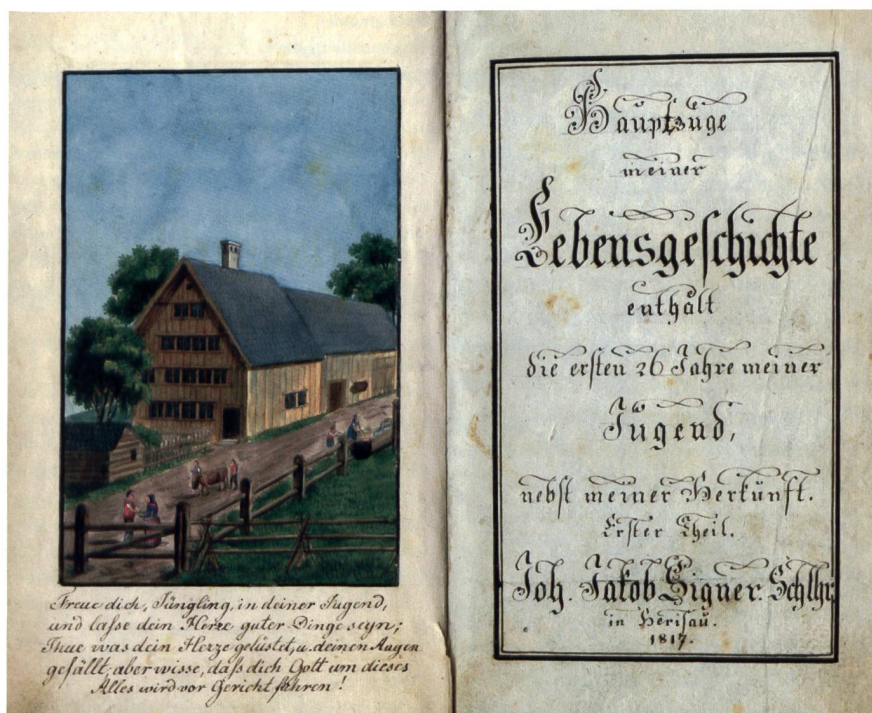 Freue dich, Jüngling, in deiner Jugend,
und lasse dein Herze guter Dinge seyn;
Thue was dein Herze gelüstet, u. deinen Augen
gefällt; aber wisse, daſs dich Gott um dieses
Alles wird vor Gericht führen!
Hauptzüge
meiner
Lebensgeſchichte
enthält
die erſten 26 Jahre meiner
Jugend,
nebſt meiner Herkunft.
Erſter Theil.
Joh. Jakob Signer. Schlhr.
in Heriſau.
1817.